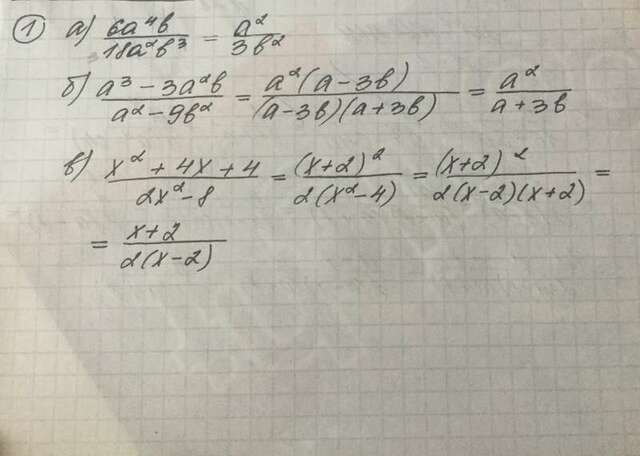 ① а) 6a⁴b/18a²b³ = a²/3b²
б) a³ - 3a²b/a² - 9b² = a²(a - 3b)/(a - 3b)(a + 3b) = a²/a + 3b
в) x² + 4x + 4/2x² - 8 = (x+2)²/2(x² - 4) = (x+2)²/2(x-2)(x+2) =
= x+2/2(x-2)